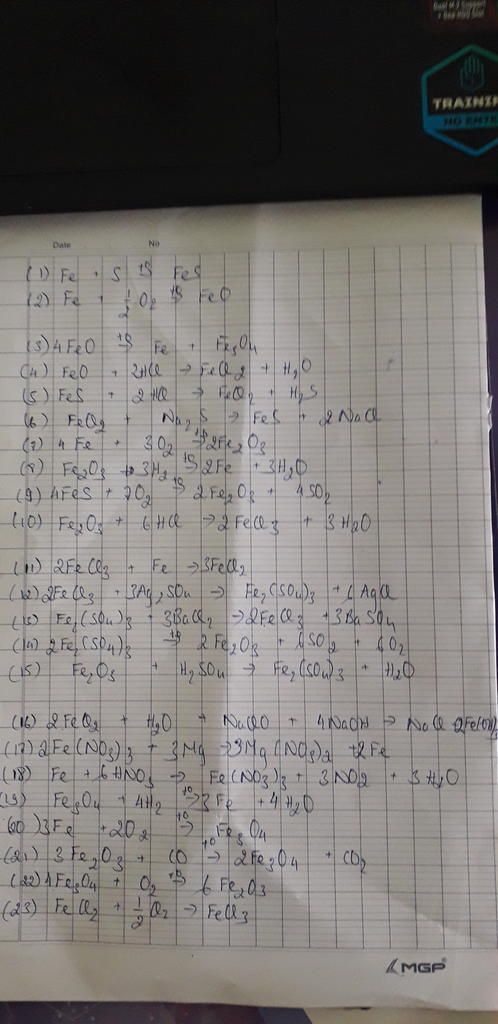 TRAININ
NO ENTE
Date No
(1) Fe + S t° FeS
(2) Fe + 1/2 O2 t°→ FeO
(3) 4FeO t°→ Fe + Fe3O4
(4) FeO + 2HCl → FeCl2 + H2O
(5) FeS + 2HCl → FeCl2 + H2S
(6) FeCl2 + Na2S → FeS + 2NaCl
(7) 4Fe + 3O2 t°→ 2Fe2O3
(8) Fe2O3 + 3H2 t°→ 2Fe + 3H2O
(9) 4FeS + 7O2 t°→ 2Fe2O3 + 4SO2
(10) Fe2O3 + 6HCl → 2FeCl3 + 3H2O
(11) 2FeCl3 + Fe → 3FeCl2
(12) 2FeCl3 + 3Ag2SO4 → Fe2(SO4)3 + 6AgCl
(13) Fe2(SO4)3 + 3BaCl2 → 2FeCl3 + 3BaSO4
(14) 2Fe2(SO4)3 t°→ 2Fe2O3 + 6SO2 + 6O2
(15) Fe2O3 + H2SO4 → Fe2(SO4)3 + H2O
(16) 2FeCl2 + H2O + NaClO + 4NaOH → NaCl 2Fe(OH)3
(17) 2Fe(NO3)3 + 3Mg → 3Mg(NO3)2 + 2Fe
(18) Fe + 6HNO3 → Fe(NO3)3 + 3NO2 + 3H2O
(19) Fe3O4 + 4H2 t°→ 3Fe + 4H2O
(20) 3Fe + 2O2 t°→ Fe3O4
(21) 3Fe2O3 + CO t°→ 2Fe3O4 + CO2
(22) 4Fe3O4 + O2 t°→ 6Fe2O3
(23) FeCl2 + 1/2 Cl2 → FeCl3
MGP